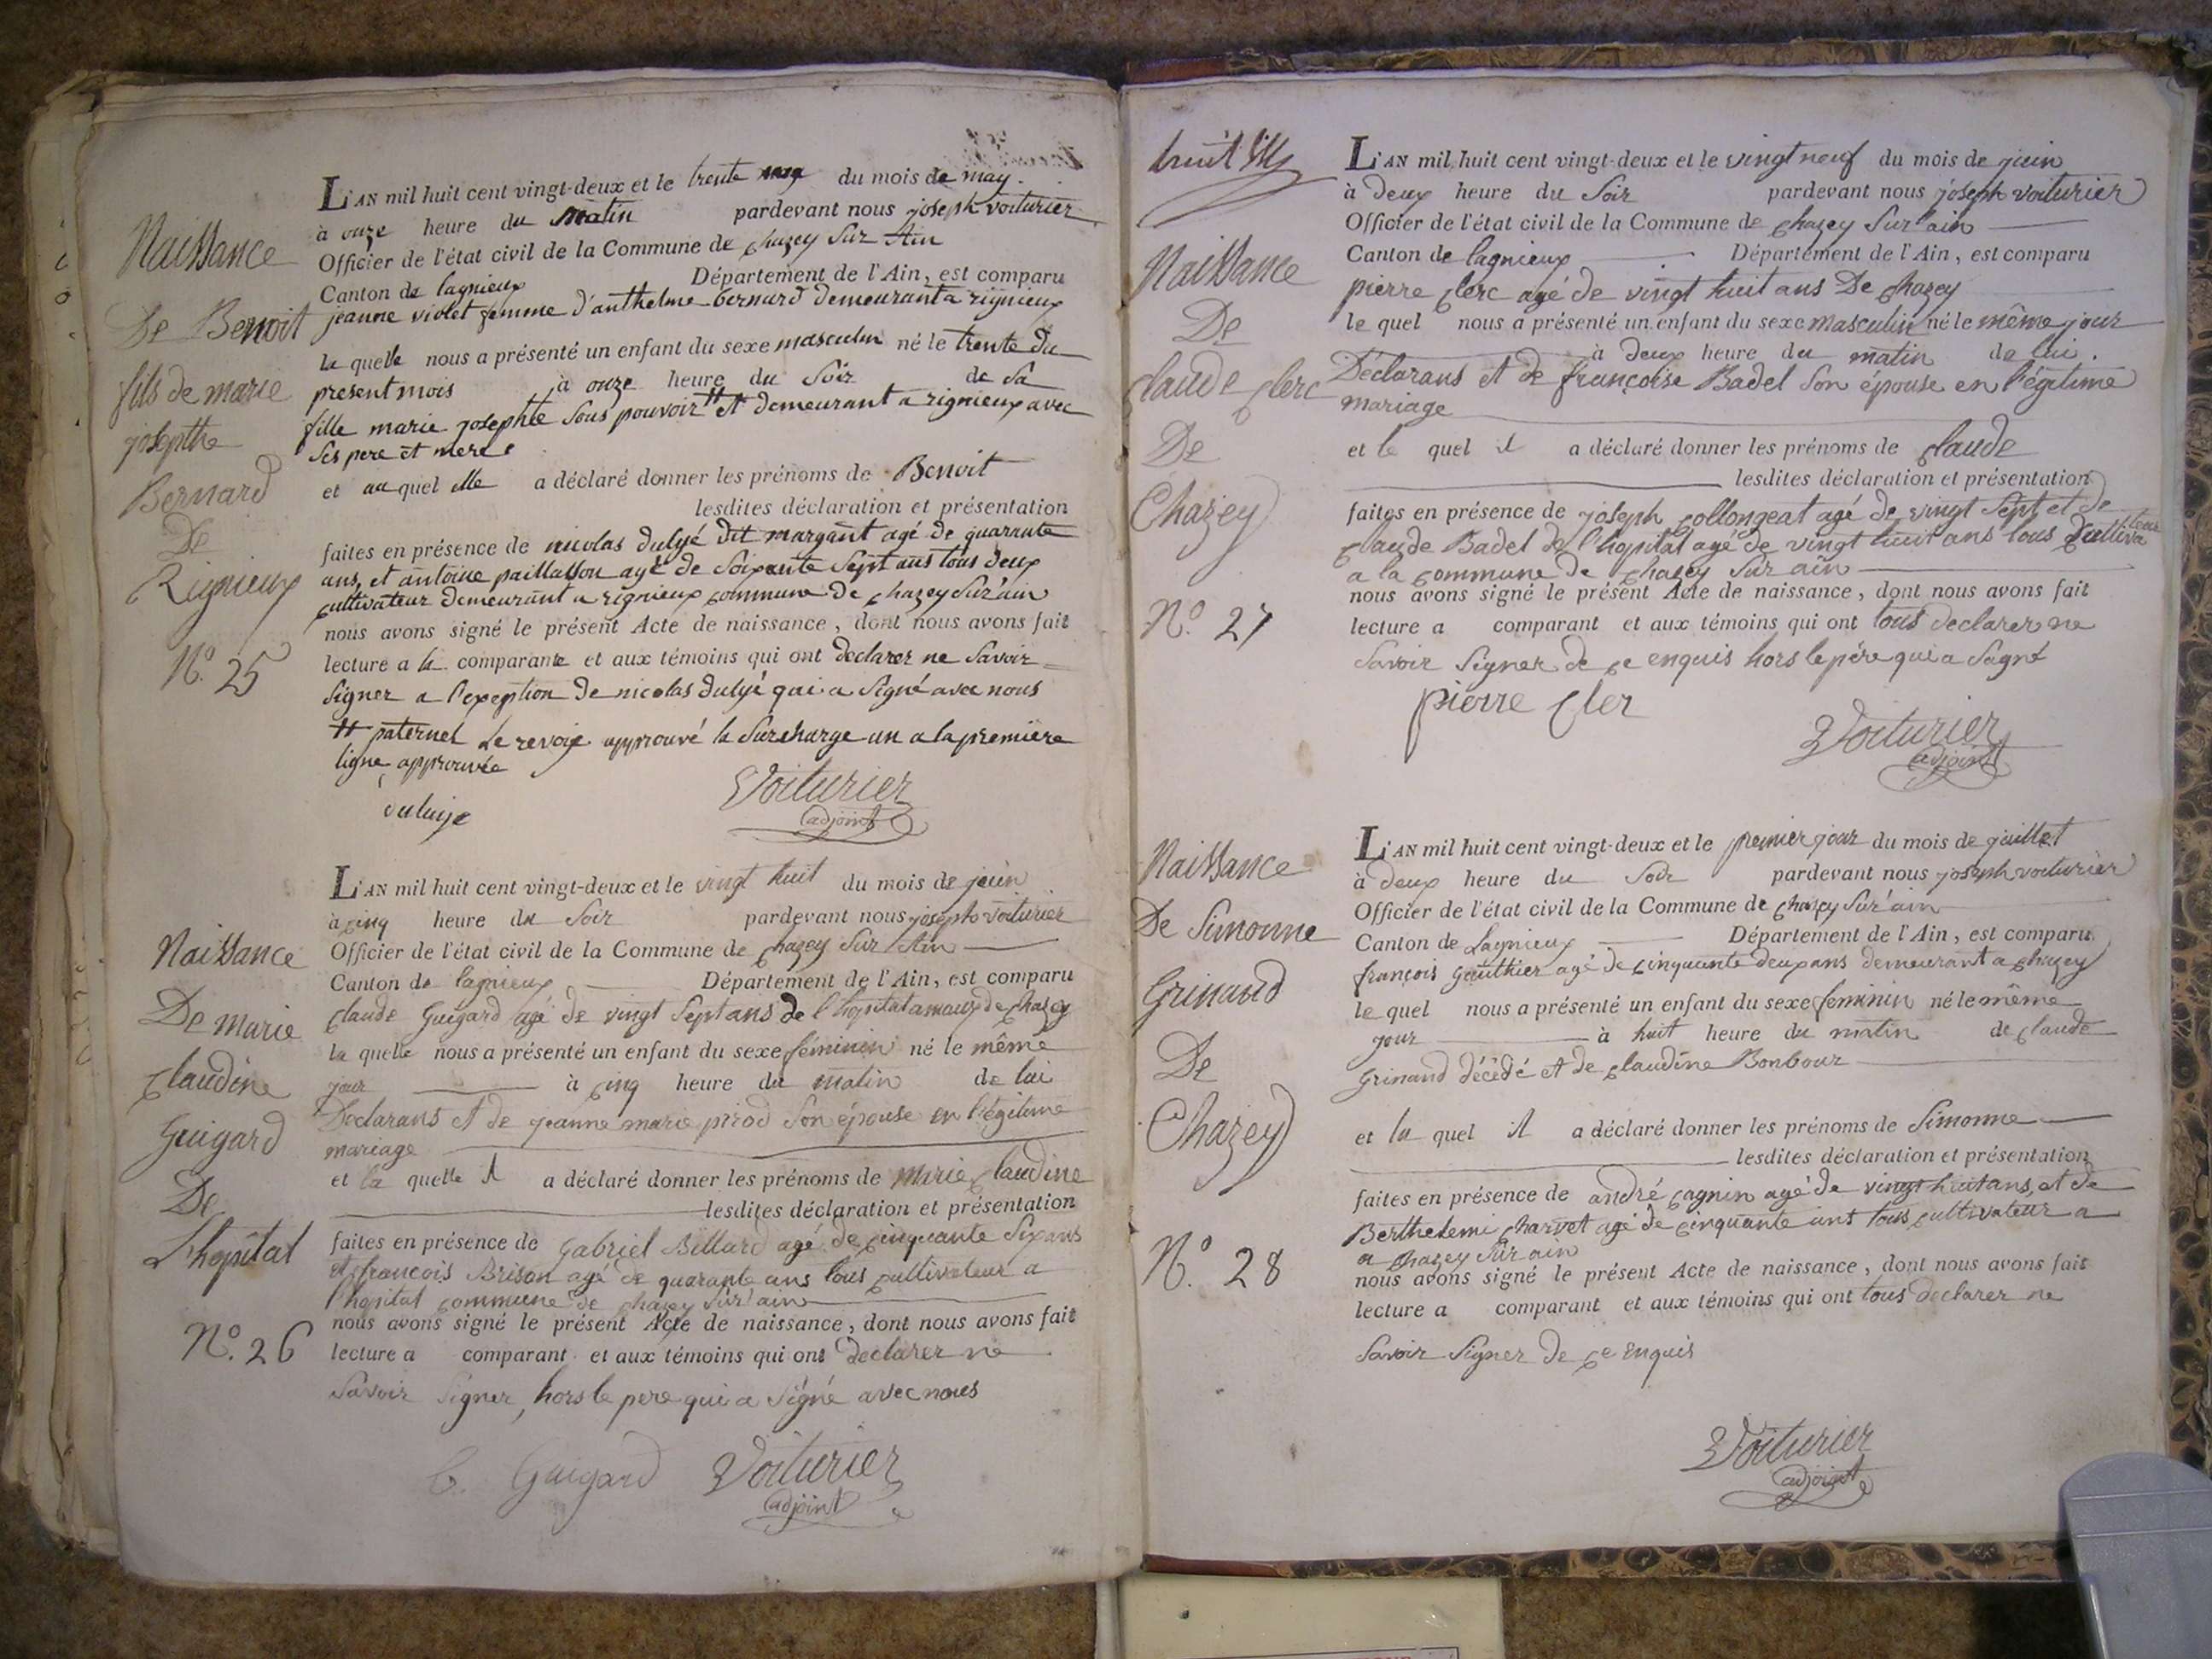 Naissance
De Benoit
fils de marie
josepthe
Bernard
De
Rignieux
N.o 25
L'AN mil huit cent vingt-deux et le trente du mois de may
à onze heure du matin pardevant nous joseph voiturier
Officier de l'état civil de la Commune de chazey sur Ain
Canton de lagnieux Département de l'Ain, est comparu
jeanne violet femme d'anthelme bernard demeurant a rignieux
la quelle nous a présenté un enfant du sexe masculin né le trente du
present mois à onze heure du soir de sa
fille marie josephte sous pouvoir # et demeurant a rignieux avec
ses pere et mere
et au quel elle a déclaré donner les prénoms de Benoit
lesdites déclaration et présentation
faites en présence de nicolas dulyé dit margant agé de quarante
ans, et antoine paillasson agé de soixante sept ans tous deux
cultivateur demeurant a rignieux commune de chazey sur ain
nous avons signé le présent Acte de naissance, dont nous avons fait
lecture a la comparante et aux témoins qui ont declarer ne savoir
signer a l'exeption de nicolas dulyé qui a signé avec nous
# paternel le revoix approuvé la surcharge un a la premiere
ligne approuvée
duluije Voiturier
adjoint
Naissance
De marie
claudine
Guigard
De
L'hopital
N.o 26
L'AN mil huit cent vingt-deux et le vingt huit du mois de juin
à cinq heure du soir pardevant nous joseph voiturier
Officier de l'état civil de la Commune de chazey sur Ain
Canton de lagnieux Département de l'Ain, est comparu
claude Guigard agé de vingt sept ans de l'hopital de chazey
la quelle nous a présenté un enfant du sexe féminin né le même
jour à cinq heure du matin de lui
Déclarans et de jeanne marie pirod son épouse en légitime
mariage
et la quelle il a déclaré donner les prénoms de marie claudine
lesdites déclaration et présentation
faites en présence de Gabriel Billard agé de cinquante six ans
et françois Brison agé de quarante ans tous cultivateur a
l'hopital commune de chazey sur ain
nous avons signé le présent Acte de naissance, dont nous avons fait
lecture a comparant et aux témoins qui ont declarer ne
savoir signer, hors le pere qui a signé avec nous
C. Guigard Voiturier
adjoint
huit
Naissance
De
claude clerc
De
Chazey
N.o 27
L'AN mil huit cent vingt-deux et le vingt neuf du mois de juin
à deux heure du soir pardevant nous joseph voiturier
Officier de l'état civil de la Commune de chazey sur ain
Canton de lagnieux Département de l'Ain, est comparu
pierre clerc agé de vingt huit ans De chazey
le quel nous a présenté un enfant du sexe masculin né le même jour
à deux heure du matin de lui
Déclarans et de françoise Badel son épouse en légitime
mariage
et le quel il a déclaré donner les prénoms de claude
lesdites déclaration et présentation
faites en présence de joseph collongeat agé de vingt sept et de
claude Badel de l'hopital agé de vingt huit ans tous cultivateur
a la commune de chazey sur ain
nous avons signé le présent Acte de naissance, dont nous avons fait
lecture a comparant et aux témoins qui ont tous declarer ne
savoir signer de ce enquis hors le pére qui a signé
pierre cler Voiturier
adjoint
Naissance
De Simonne
Grinand
De
Chazey
N.o 28
L'AN mil huit cent vingt-deux et le premier jour du mois de juillet
à deux heure du soir pardevant nous joseph voiturier
Officier de l'état civil de la Commune de chazey sur ain
Canton de Lagnieux Département de l'Ain, est comparu
françois Gauthier agé de cinquante deux ans demeurant a chazey
le quel nous a présenté un enfant du sexe feminin né le même
jour à huit heure du matin de claude
Grinand décédé et de claudine Bonbour
et la quel il a déclaré donner les prénoms de Simonne
lesdites déclaration et présentation
faites en présence de andré cagnin agé de vingt huit ans, et de
Berthelemi charvet agé de cinquante ans tous cultivateur a
a chazey sur ain
nous avons signé le présent Acte de naissance, dont nous avons fait
lecture a comparant et aux témoins qui ont tous declarer ne
savoir signer de ce enquis
Voiturier
adjoint